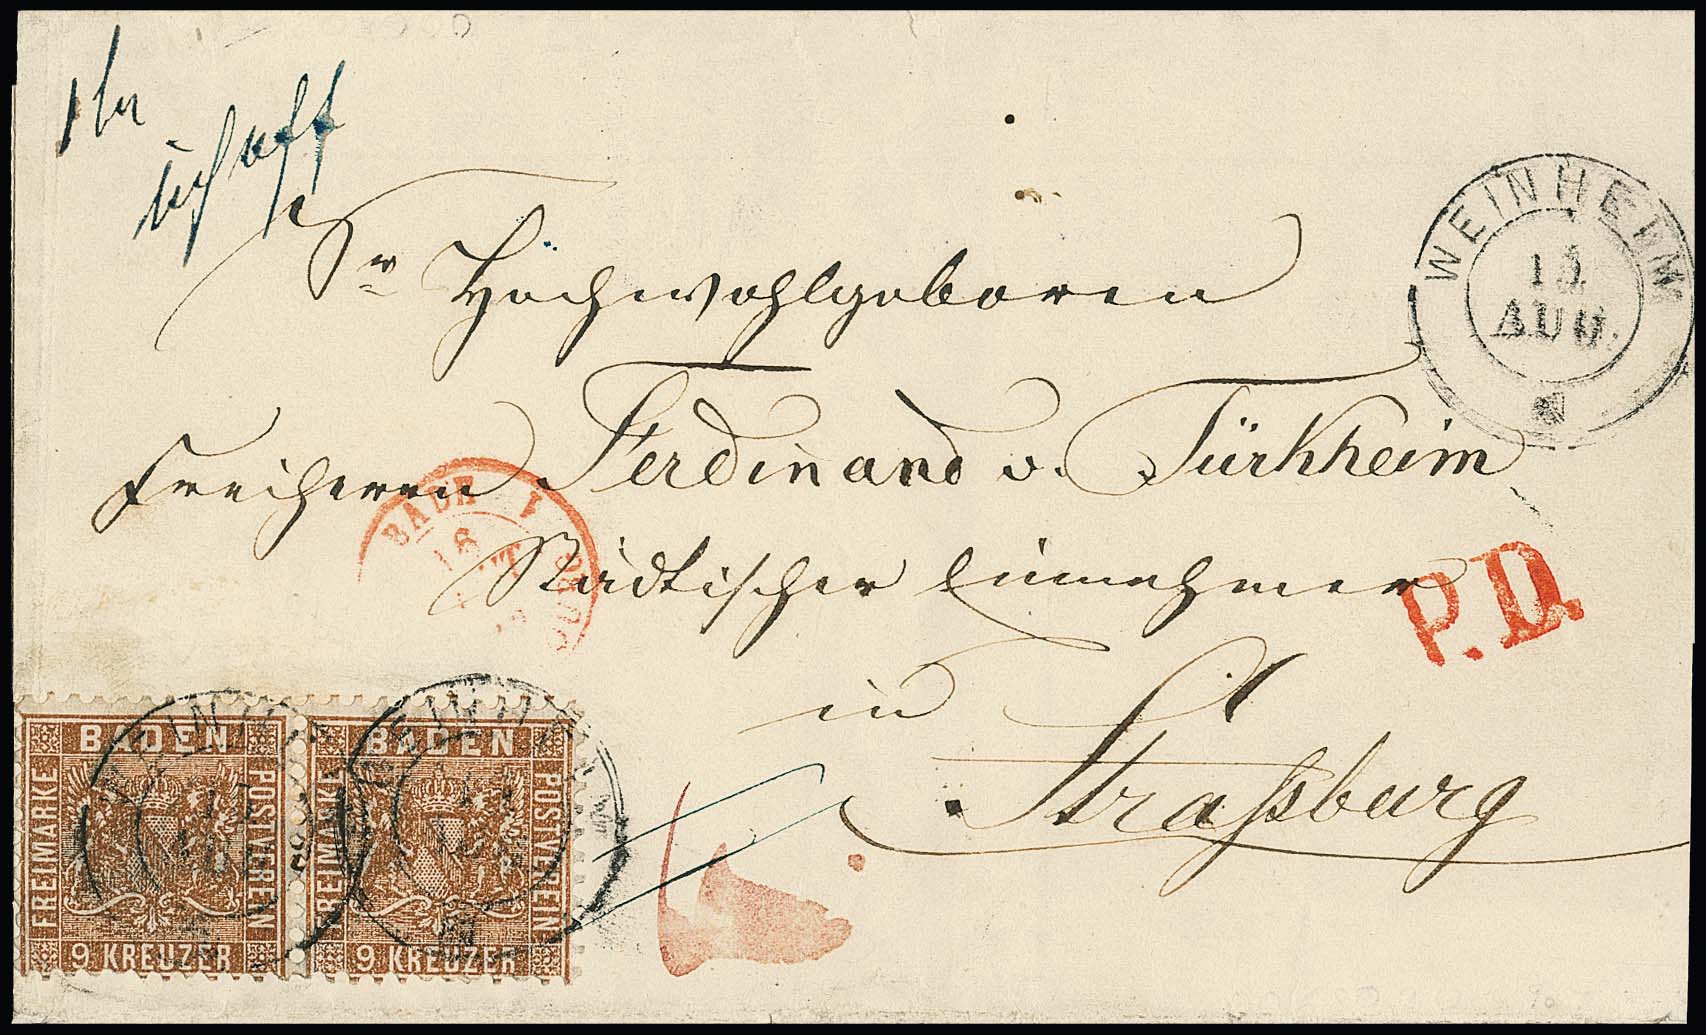 Sr Hochwohlgeboren
WEINHEIM
15
AUG.
Freiherrn Ferdinand v. Türkheim
BADE
Städtischer Einnehmer
P.D.
in
Straßburg
BADEN
FREIMARKE
POSTVEREIN
9 KREUZER
BADEN
FREIMARKE
POSTVEREIN
9 KREUZER